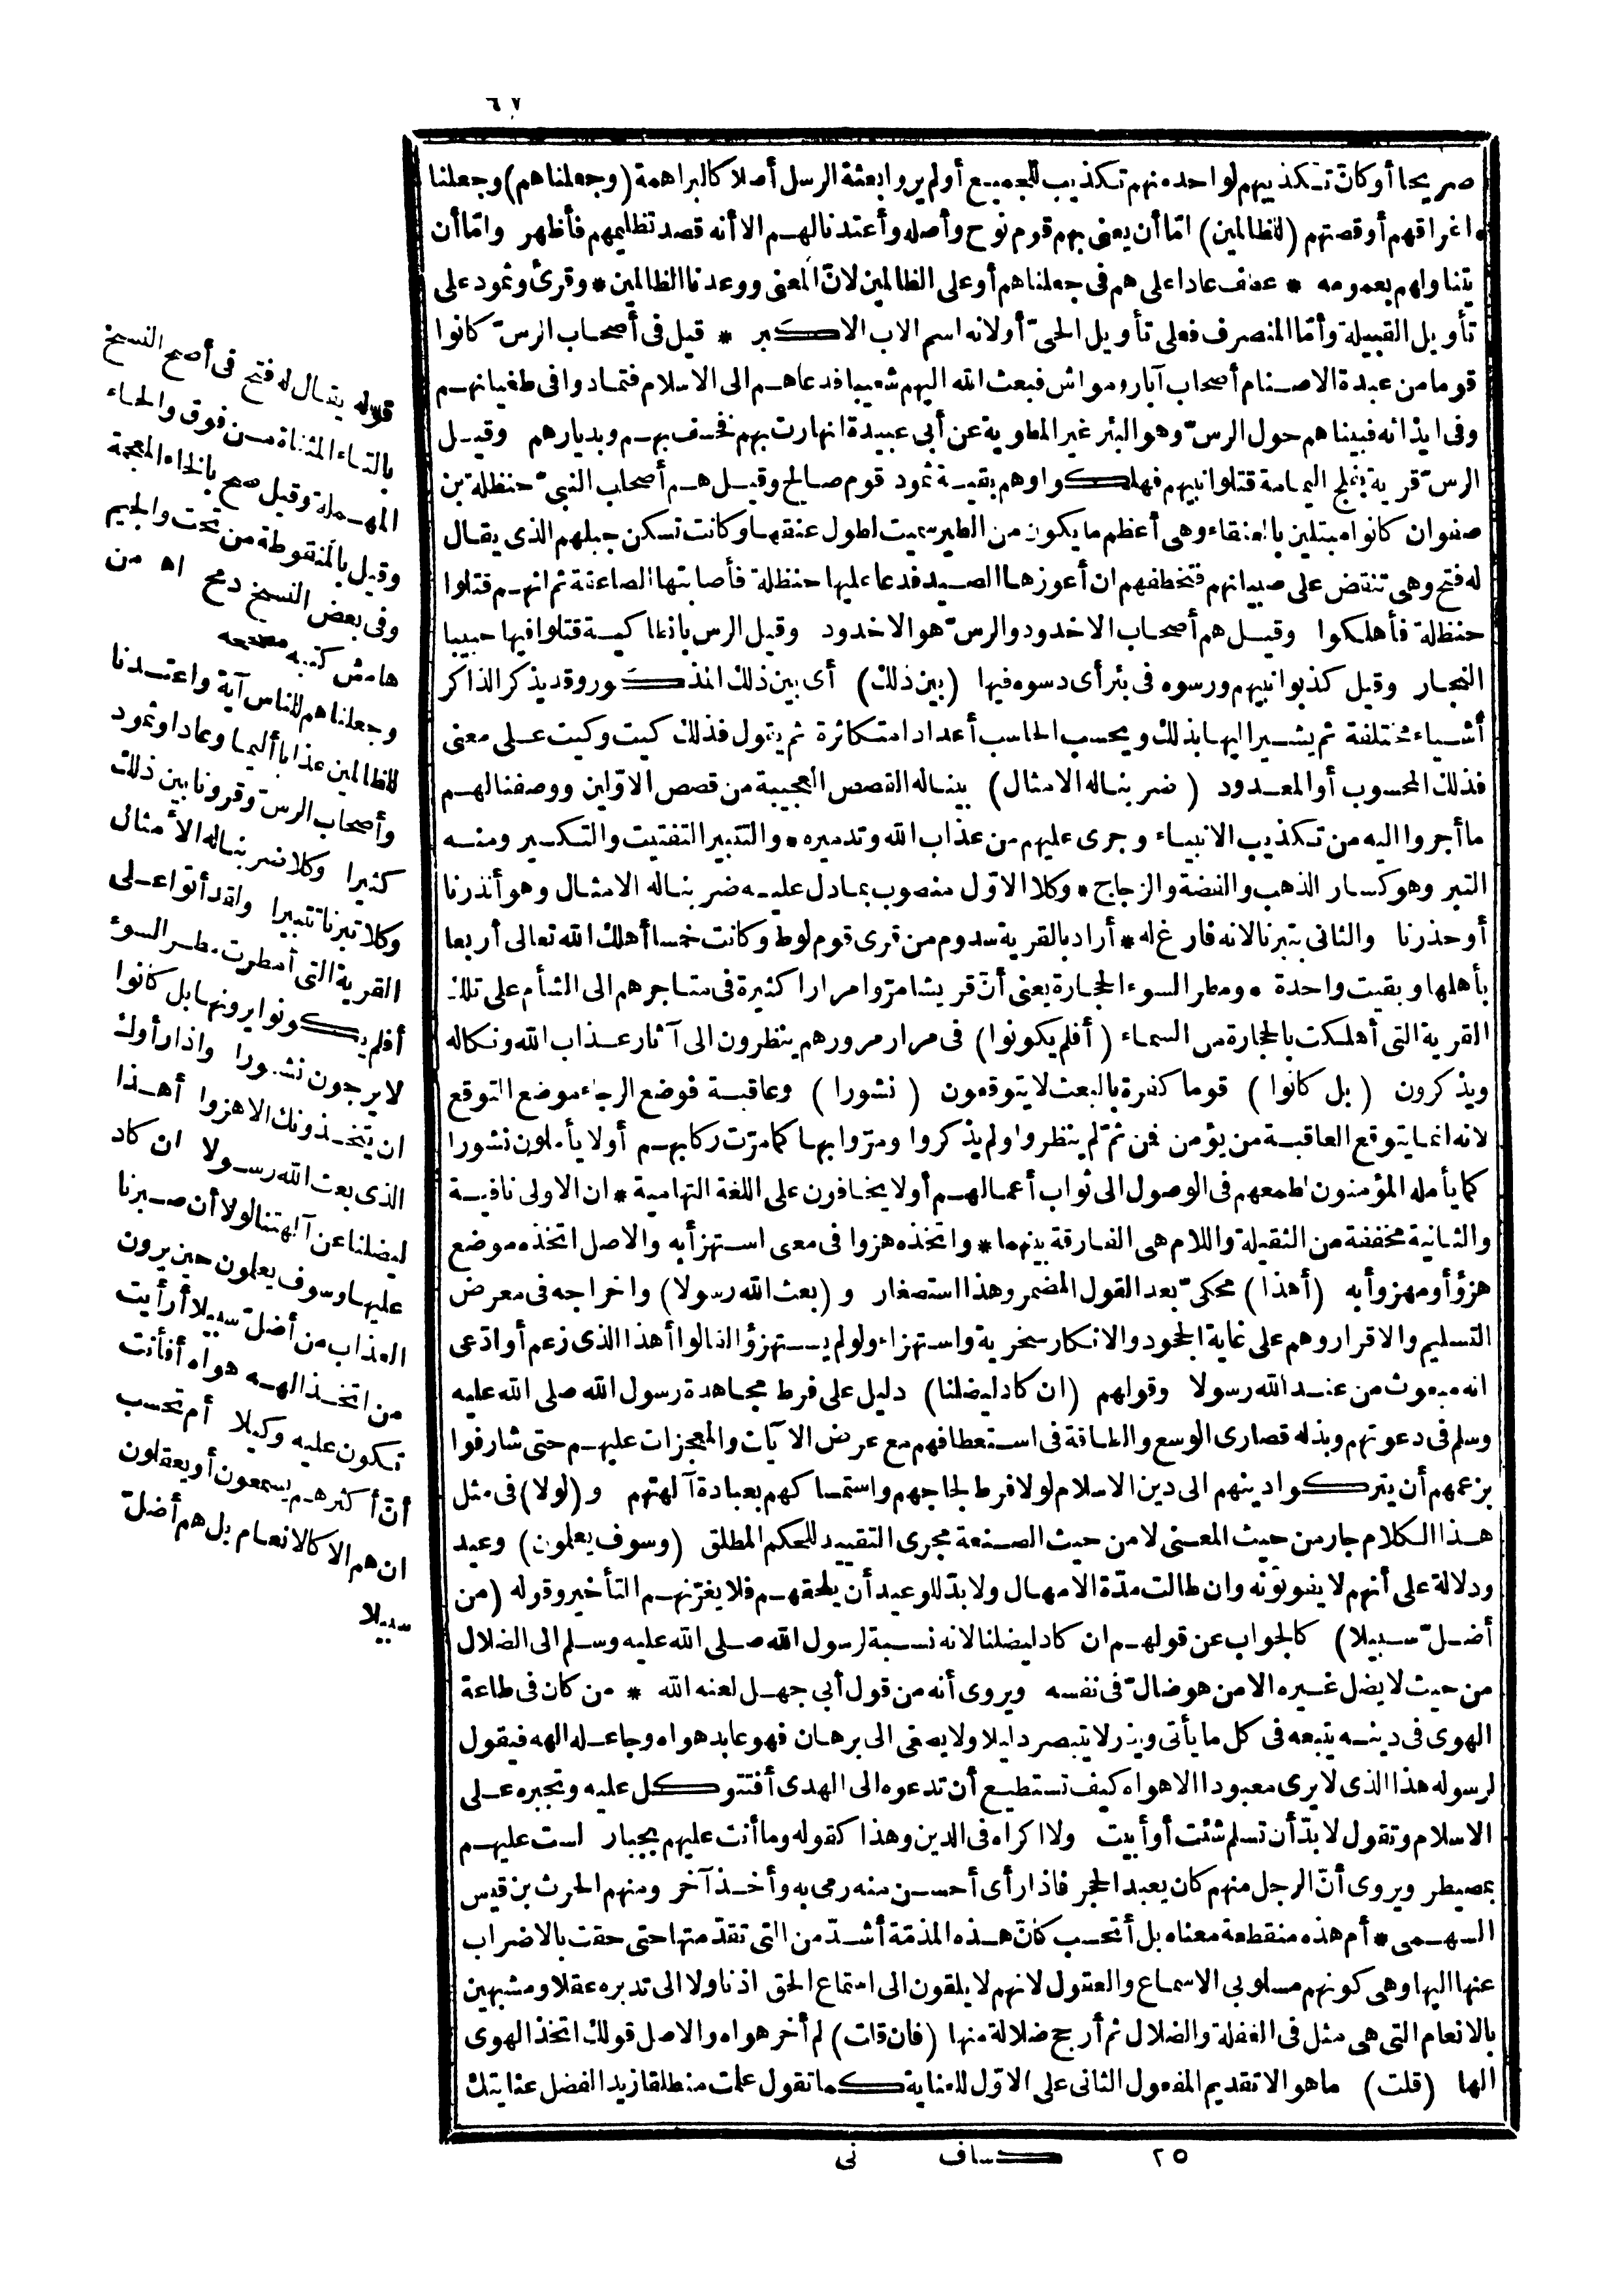 ٦٧
صريحا أو كانّ تكذيبهم لواحد منهم تكذيب للجميع أو لم يروا بعثة الرسل أصلا كالبراهمة (وجعلناهم) وجعلنا
اغراقهم أو قصتهم (للظالمين) امّا أن يعنى بهم قوم نوح وأصله وأعتدنا لهم الا أنه قصد تظليمهم فأظهر وامّا أن
يتناولهم بعمومه * عطف عادا على هم فى جعلناهم أو على الظالمين لانّ المعنى ووعدنا الظالمين * وقرئ وثمود على
تأويل القبيلة وأمّا المنصرف فعلى تأويل الحىّ أو لانه اسم الاب الاكبر * قيل فى أصحاب الرسّ كانوا
قوما من عبدة الاصنام أصحاب آبار ومواش فبعث الله اليهم شعيبا فدعاهم الى الاسلام فتمادوا فى طغيانهم
وفى ايذائه فبيناهم حول الرسّ وهو البئر غير المطوية عن أبى عبيدة انهارت بهم فخسف بهم وبديارهم وقيل
الرسّ قرية بفلج اليمامة قتلوا نبيهم فهلكوا وهم بقية ثمود قوم صالح وقيل هم أصحاب النبىّ حنظلة بن
صفوان كانوا مبتلين بالعنقاء وهى أعظم ما يكون من الطير سميت لطول عنقها وكانت تسكن جبلهم الذى يقال
له فتح وهى تنقض على صبيانهم فتخطفهم ان أعوزها الصيد فدعا عليها حنظلة فأصابتها الصاعقة ثم انهم قتلوا
حنظلة فأهلكوا وقيل هم أصحاب الاخدود والرسّ هو الاخدود وقيل الرس بانطاكية قتلوا فيها حبيبا
النجار وقيل كذبوا نبيهم ورسوه فى بئر أى دسوه فيها (بين ذلك) أى بين ذلك المذكور وقد يذكر الذاكر
أشياء مختلفة ثم يشير اليها بذلك ويحسب الحاسب أعدادا متكاثرة ثم يقول فذلك كيت وكيت على معنى
فذلك المحسوب أو المعدود (ضربنا له الامثال) بينا له القصص العجيبة من قصص الاوّلين ووصفنا لهم
ما أجروا اليه من تكذيب الانبياء وجرى عليهم من عذاب الله وتدميره * والتتبير التفتيت والتكسير ومنه
التبر وهو كسار الذهب والفضة والزجاج * وكلا الاوّل منصوب بما دل عليه ضربنا له الامثال وهو أنذرنا
أو حذرنا والثانى بتبرنا لانه فارغ له * أراد بالقرية سدوم من قرى قوم لوط وكانت خمسا أهلك الله تعالى أربعا
بأهلها وبقيت واحدة * ومطر السوء الحجارة يعنى أنّ قريشا مرّوا مرارا كثيرة فى متاجرهم الى الشأم على تلك
القرية التى أهلكت بالحجارة من السماء (أفلم يكونوا) فى مرار مرورهم ينظرون الى آثار عذاب الله ونكاله
ويذكرون (بل كانوا) قوما كفرة بالبعث لا يتوقعون (نشورا) وعاقبة فوضع الرجاء موضع التوقع
لانه انما يتوقع العاقبة من يؤمن فمن ثمّ لم ينظروا ولم يذكروا ومرّوا بها كما مرّت ركابهم أو لا يأملون نشورا
كما يأمله المؤمنون لطمعهم فى الوصول الى ثواب أعمالهم أو لا يخافون على اللغة التهامية * ان الاولى نافية
والثانية مخففة من الثقيلة واللام هى الفارقة بينهما * واتخذه هزوا فى معنى استهزأ به والاصل اتخذه موضع
هزؤ أو مهزوأ به (أهذا) محكىّ بعد القول المضمر وهذا استصغار و (بعث الله رسولا) واخراجه فى معرض
التسليم والاقرار وهم على غاية الجحود والانكار سخرية واستهزاء ولو لم يستهزؤا لقالوا أهذا الذى زعم أو ادّعى
انه مبعوث من عند الله رسولا وقولهم (ان كاد ليضلنا) دليل على فرط مجاهدة رسول الله صلى الله عليه
وسلم فى دعوتهم وبذله قصارى الوسع والطاقة فى استعطافهم مع عرض الآيات والمعجزات عليهم حتى شارفوا
بزعمهم أن يتركوا دينهم الى دين الاسلام لولا فرط لجاجهم واستمساكهم بعبادة آلهتهم و (لولا) فى مثل
هذا الكلام جار من حيث المعنى لا من حيث الصنعة مجرى التقييد للحكم المطلق (وسوف يعلمون) وعيد
ودلالة على أنهم لا يفوتونه وان طالت مدّة الامهال ولا بدّ للوعيد أن يلحقهم فلا يغرّنهم التأخير وقوله (من
أضلّ سبيلا) كالجواب عن قولهم ان كاد ليضلنا لانه نسبة لرسول الله صلى الله عليه وسلم الى الضلال
من حيث لا يضل غيره الا من هو ضالّ فى نفسه ويروى أنه من قول أبى جهل لعنه الله * من كان فى طاعة
الهوى فى دينه يتبعه فى كل ما يأتى ويذر لا يتبصر دليلا ولا يصغى الى برهان فهو عابد هواه وجاعله الهه فيقول
لرسوله هذا الذى لا يرى معبودا الا هواه كيف تستطيع أن تدعوه الى الهدى أفتتوكل عليه وتجبره على
الاسلام وتقول لا بدّ أن تسلم شئت أو أبيت ولا اكراه فى الدين وهذا كقوله وما أنت عليهم بجبار لست عليهم
بمصيطر ويروى أنّ الرجل منهم كان يعبد الحجر فاذا رأى أحسن منه رمى به وأخذ آخر ومنهم الحرث بن قيس
السهمى * أم هذه منقطعة معناه بل أتحسب كانّ هذه المذمّة أشدّ من التى تقدّمتها حتى حقت بالاضراب
عنها اليها وهى كونهم مسلوبى الاسماع والعقول لانهم لا يلقون الى استماع الحق اذنا ولا الى تدبره عقلا ومشبهين
بالانعام التى هى مثل فى الغفلة والضلال ثم أرجح ضلالة منها (فان قلت) لم أخر هواه والاصل قولك اتخذ الهوى
الها (قلت) ما هو الا تقديم المفعول الثانى على الاوّل للعناية كما تقول علمت منطلقا زيدا لفضل عنايتك
قوله يقال له فتح فى أصح النسخ
بالتاء المثناة من فوق والحاء
المهملة وقيل صح بالخاء المعجمة
وقيل بالمنقوطة من تحت والجيم
وفى بعض النسخ دمح اه من
هامش كتبه مصححه
وجعلناهم للناس آية واعتدنا
للظالمين عذابا أليما وعادا وثمود
وأصحاب الرسّ وقرونا بين ذلك
كثيرا وكلا ضربنا له الأمثال
وكلا تبرنا تتبيرا ولقد أتوا على
القرية التى أمطرت مطر السوء
أفلم يكونوا يرونها بل كانوا
لا يرجون نشورا واذا رأوك
ان يتخذونك الا هزوا أهذا
الذى بعث الله رسولا ان كاد
ليضلنا عن آلهتنا لولا أن صبرنا
عليها وسوف يعلمون حين يرون
العذاب من أضلّ سبيلا أرأيت
من اتخذ الهه هواه أفأنت
تكون عليه وكيلا أم تحسب
أنّ أكثرهم يسمعون أو يعقلون
ان هم الا كالانعام بل هم أضلّ
سبيلا
٢٥ كشاف نى